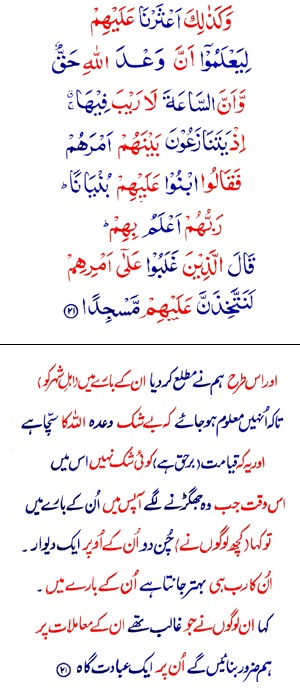 وَكَذٰلِكَ اَعْثَرْنَا عَلَيْهِمْ
لِيَعْلَمُوْٓا اَنَّ وَعْدَ اللّٰهِ حَقٌّ
وَّاَنَّ السَّاعَةَ لَا رَيْبَ فِيْهَا ۚ
اِذْ يَتَنَازَعُوْنَ بَيْنَهُمْ اَمْرَهُمْ
فَقَالُوا ابْنُوْا عَلَيْهِمْ بُنْيَانًا ؕ
رَبُّهُمْ اَعْلَمُ بِهِمْ ؕ
قَالَ الَّذِيْنَ غَلَبُوْا عَلٰٓى اَمْرِهِمْ
لَنَتَّخِذَنَّ عَلَيْهِمْ مَّسْجِدًا ۝۲۱
اور اس طرح ہم نے مطلع کر دیا ان کے بارے میں (اہلِ شہر کو)
تاکہ اُنہیں معلوم ہو جائے کہ بے شک وعدہ اللہ کا سچا ہے
اور یہ کہ قیامت (برحق ہے) کوئی شک نہیں اس میں
اس وقت جب وہ جھگڑنے لگے آپس میں اُن کے بارے میں
تو کہا (کچھ لوگوں نے) چُن دو اُن کے اُوپر ایک دیوار ۔
اُن کا رب ہی بہتر جانتا ہے اُن کے بارے میں ۔
کہا ان لوگوں نے جو غالب تھے ان کے معاملات پر
ہم ضرور بنائیں گے اُن پر ایک عبادت گاہ ۝۲۱